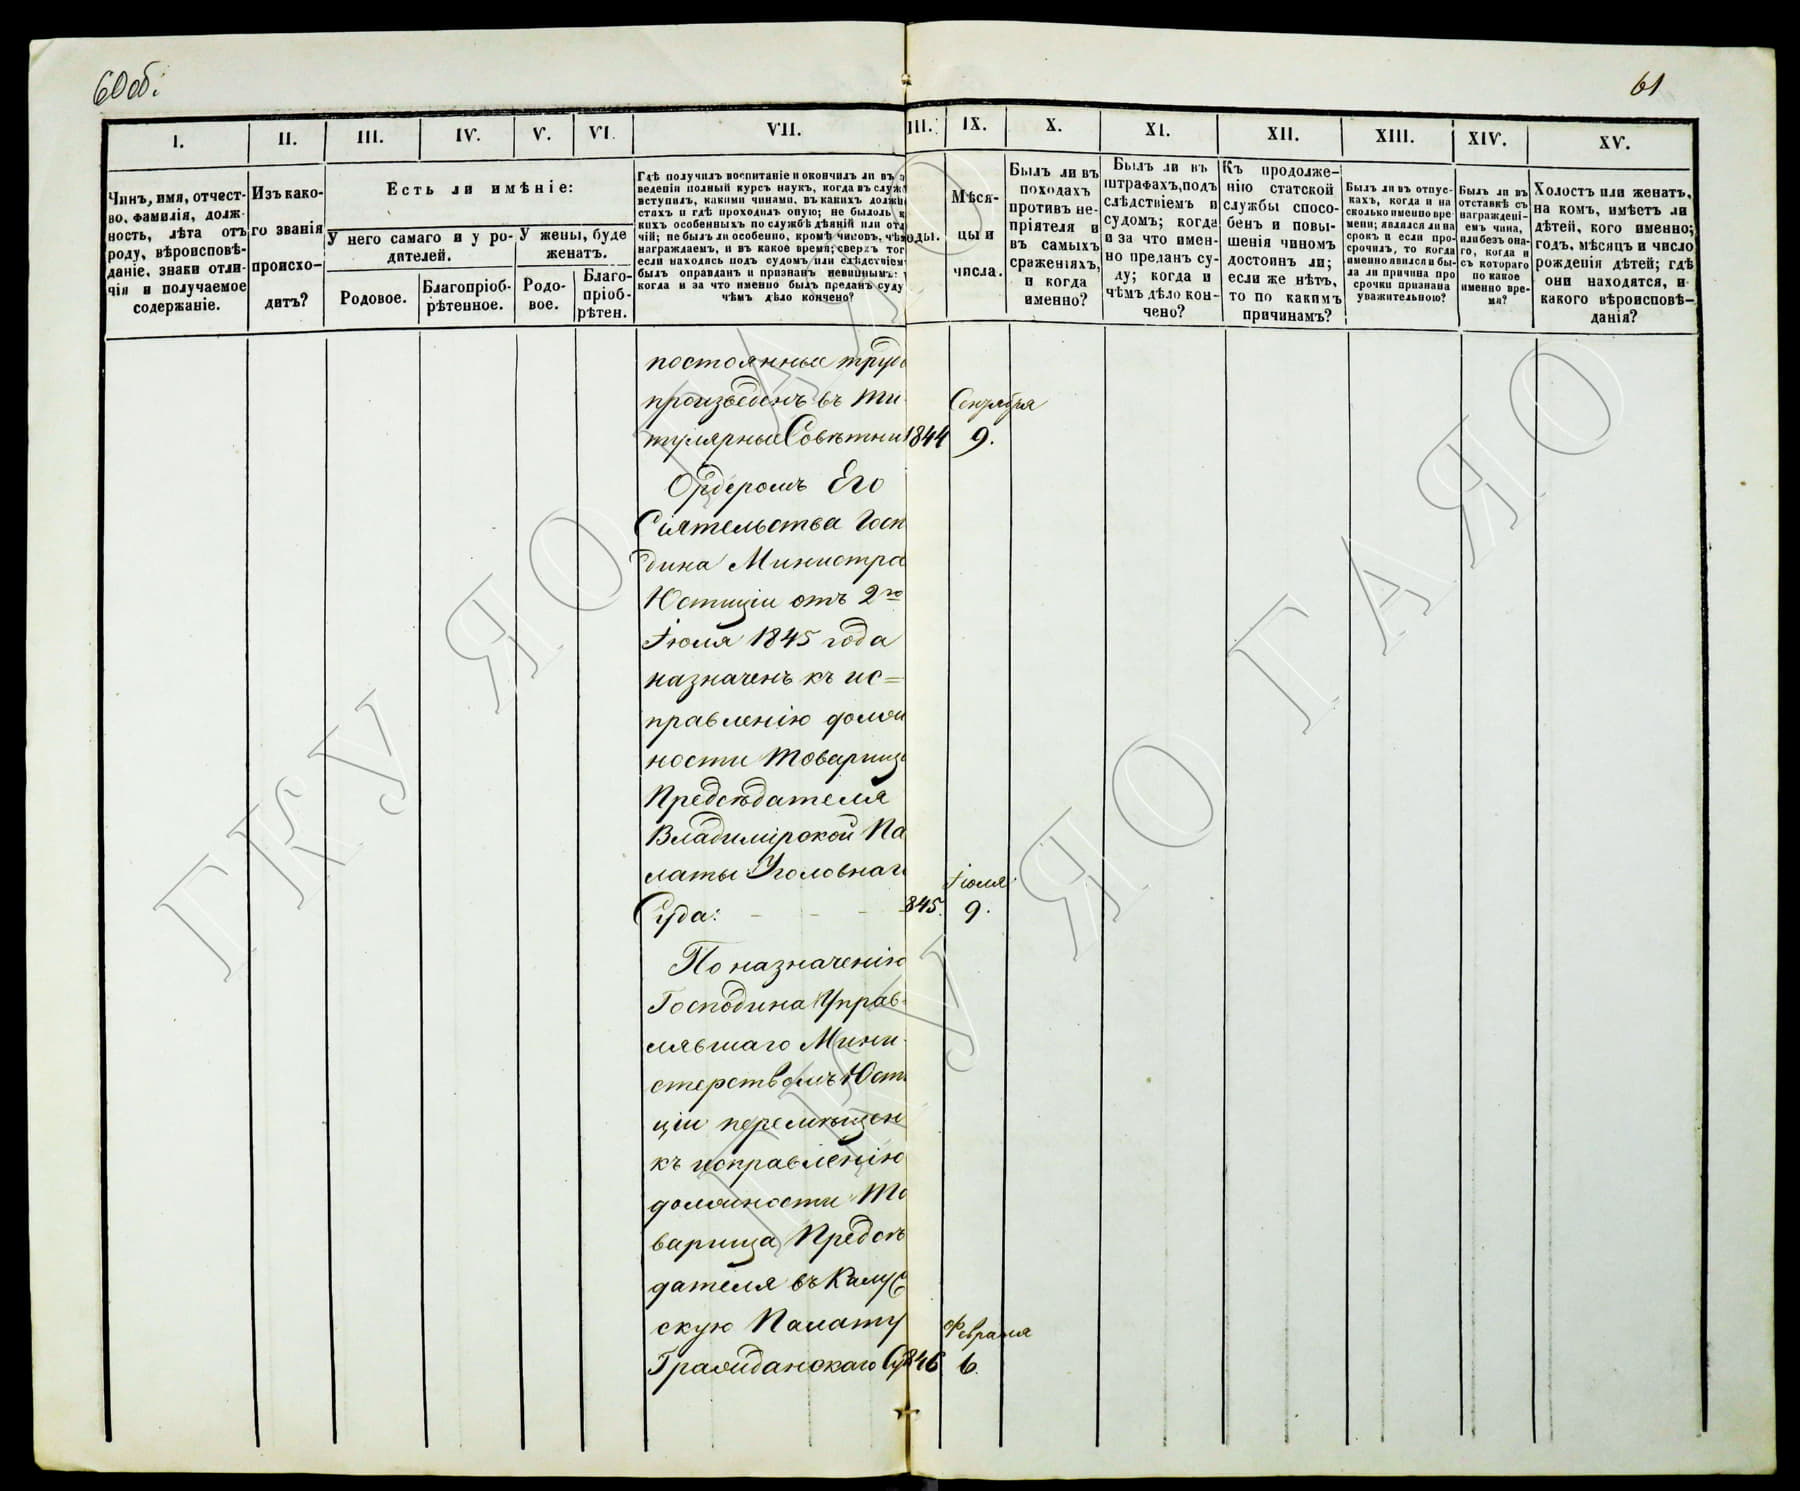 60 об:
61
I.
II.
III.
IV.
V.
VI.
VII.
III.
IX.
X.
XI.
XII.
XIII.
XIV.
XV.
Чинъ, имя, отчест-
во, фамилія, долж-
ность, лѣта отъ
роду, вѣроисповѣ-
даніе, знаки отли-
чія и получаемое
содержаніе.
Изъ како-
го званія
происхо-
дитъ?
Есть ли имѣніе:
У него самаго и у ро-
дителей.
У жены, буде
женатъ.
Родовое.
Благопріоб-
рѣтенное.
Родо-
вое.
Благо-
пріоб-
рѣтен.
Гдѣ получилъ воспитаніе и окончилъ ли въ
веденіи полный курсъ наукъ, когда въ служ
вступилъ, какими чинами, въ какихъ должн
стяхъ и гдѣ проходилъ оную; не былоль к
кихъ особенныхъ по службѣ дѣяній или отл
чій; не былъ ли особенно, кромѣ чиновъ, чѣм
награждаемъ, и въ какое время; сверхъ тог
если находясь подъ судомъ или слѣдствіем
былъ оправданъ и признанъ невиннымъ:
когда и за что именно былъ преданъ суду
чѣмъ дѣло кончено?
оды.
Мѣся-
цы и
числа.
Былъ ли въ
походахъ
противъ не-
пріятеля и
въ самыхъ
сраженіяхъ,
и когда
именно?
Былъ ли въ
штрафахъ, подъ
слѣдствіемъ и
судомъ; когда
и за что имен-
но преданъ су-
ду; когда и
чѣмъ дѣло кон-
чено?
Къ продолже-
нію статской
службы спосо-
бенъ и повы-
шенія чиномъ
достоинъ ли;
если же нѣтъ,
то по какимъ
причинамъ?
Былъ ли въ отпус-
кахъ, когда и на
сколько именно вре-
мени; являлся ли на
срокъ и если про-
срочилъ, то когда
именно явился и бы-
ла ли причина про
срочки признана
уважительною?
Былъ ли въ
отставкѣ съ
награждені-
емъ чина,
или безъ она-
го, когда и
съ котораго
по какое
именно вре-
мя?
Холостъ или женатъ,
на комъ, имѣетъ ли
дѣтей, кого именно;
годъ, мѣсяцъ и число
рожденія дѣтей; гдѣ
они находятся, и
какого вѣроисповѣ-
данія?
постоянные труд
произведенъ въ Ти-
тулярные Совѣтни 1844 Сентября 9.
Ордеромъ Его
Сіятельства Госп
дина Министра
Юстиціи отъ 2го
Іюля 1845 года
назначенъ къ ис=
правленію долж
ности Товарищ
Предсѣдателя
Владимірской Па
латы Уголовнаг
Суда: - - - 845. Іюля 9.
По назначенію
Господина Управ-
лявшаго Мини-
стерствомъ Юсти
ціи перемѣщен
къ исправленію
должности То
варища Предсѣ
дателя въ Калуж
скую Палату
Гражданскаго Су 846 Февраля 6.
ГКУ ЯО ГАЯО
ГКУ ЯО ГАЯО